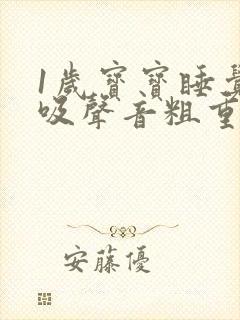 1歲寶寶睡覺
吸聲音粗重
安藤優